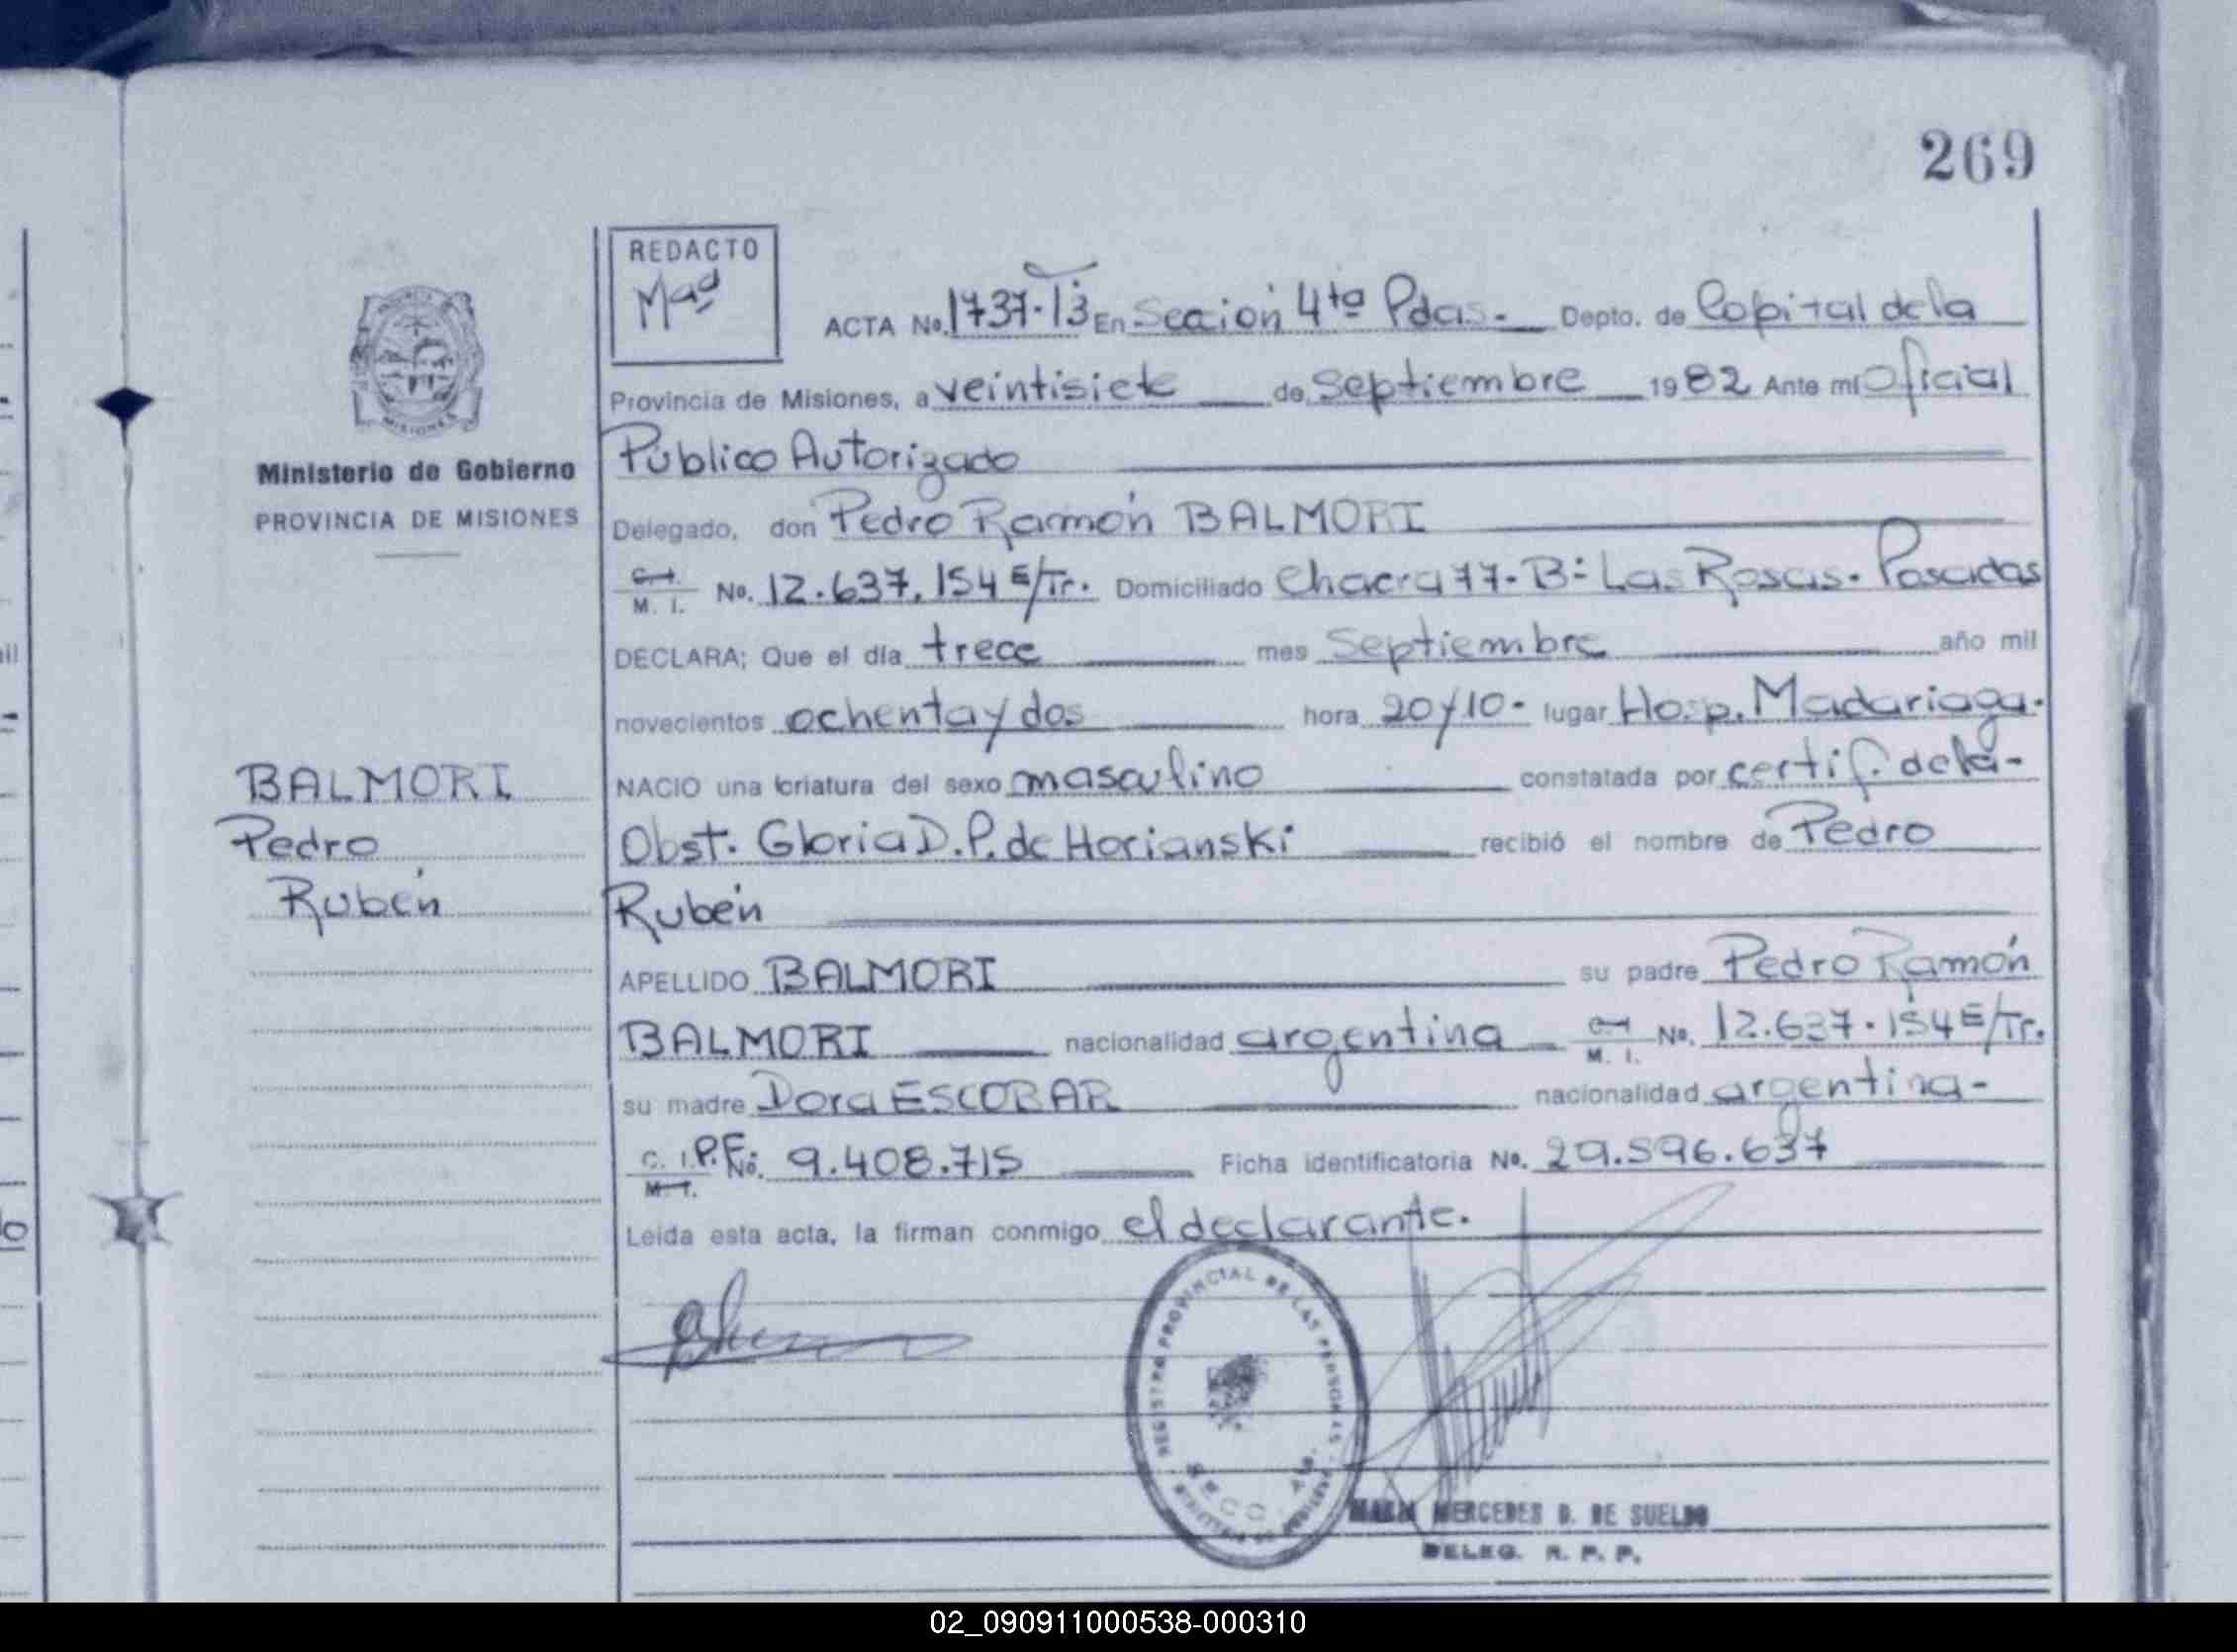 269
REDACTO
ACTA No. 1737-T3 En Sección 4ta Pdas.- Depto. de Capital de la
Provincia de Misiones, a veintisiete de Septiembre 1982 Ante mí Oficial
Público Autorizado
Delegado, don Pedro Ramón BALMORI
C. I.
M. I. No. 12.637.154 E/Tr. Domiciliado Chacra 77-Bº Las Rosas. Posadas
DECLARA; Que el día trece mes Septiembre año mil
novecientos ochenta y dos hora 20y10- lugar Hosp. Madariaga.
NACIO una criatura del sexo masculino constatada por certif. de la-
Obst. Gloria D. P. de Horianski recibió el nombre de Pedro
Rubén
APELLIDO BALMORI su padre Pedro Ramón
BALMORI nacionalidad argentina C. I. M. I. No. 12.637.154 E/Tr.
su madre Dora ESCOBAR nacionalidad argentina-
C. I. P.F. No. 9.408.715 Ficha identificatoria No. 29.596.637
M. I.
Leída esta acta, la firman conmigo el declarante.
MISIONES
Ministerio de Gobierno
PROVINCIA DE MISIONES
BALMORI
Pedro
Rubén
REGISTRO PROVINCIAL DE LAS PERSONAS
MARIA MERCEDES D. DE SUELDO
DELEG. R. P. P.
02_090911000538-000310